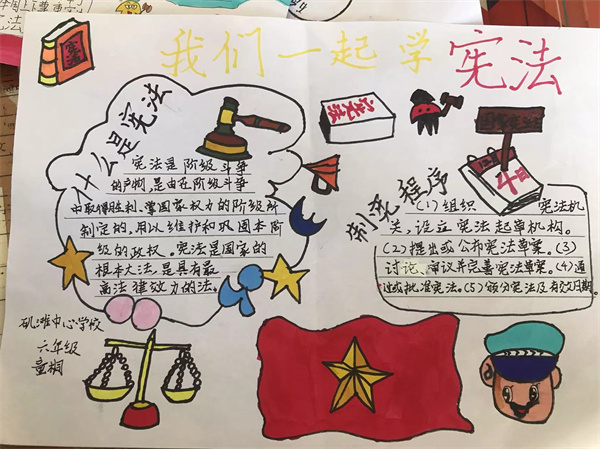 我们一起学宪法
宪法
什么是宪法
宪法是阶级斗争
的产物,是由在阶级斗争
中取得胜利、掌国家权力的阶级所
制定的,用以维护和巩固本阶
级的政权。宪法是国家的
根本大法,是具有最
高法律效力的法。
宪法
4
制宪程序
(1)组织 宪法机
关,设立宪法起草机构。
(2)提出或公布宪法草案。(3)
讨论、审议并完善宪法草案。(4)通
过或批准宪法。(5)颁分宪法及有效日期。
中心学校
六年级
童桐